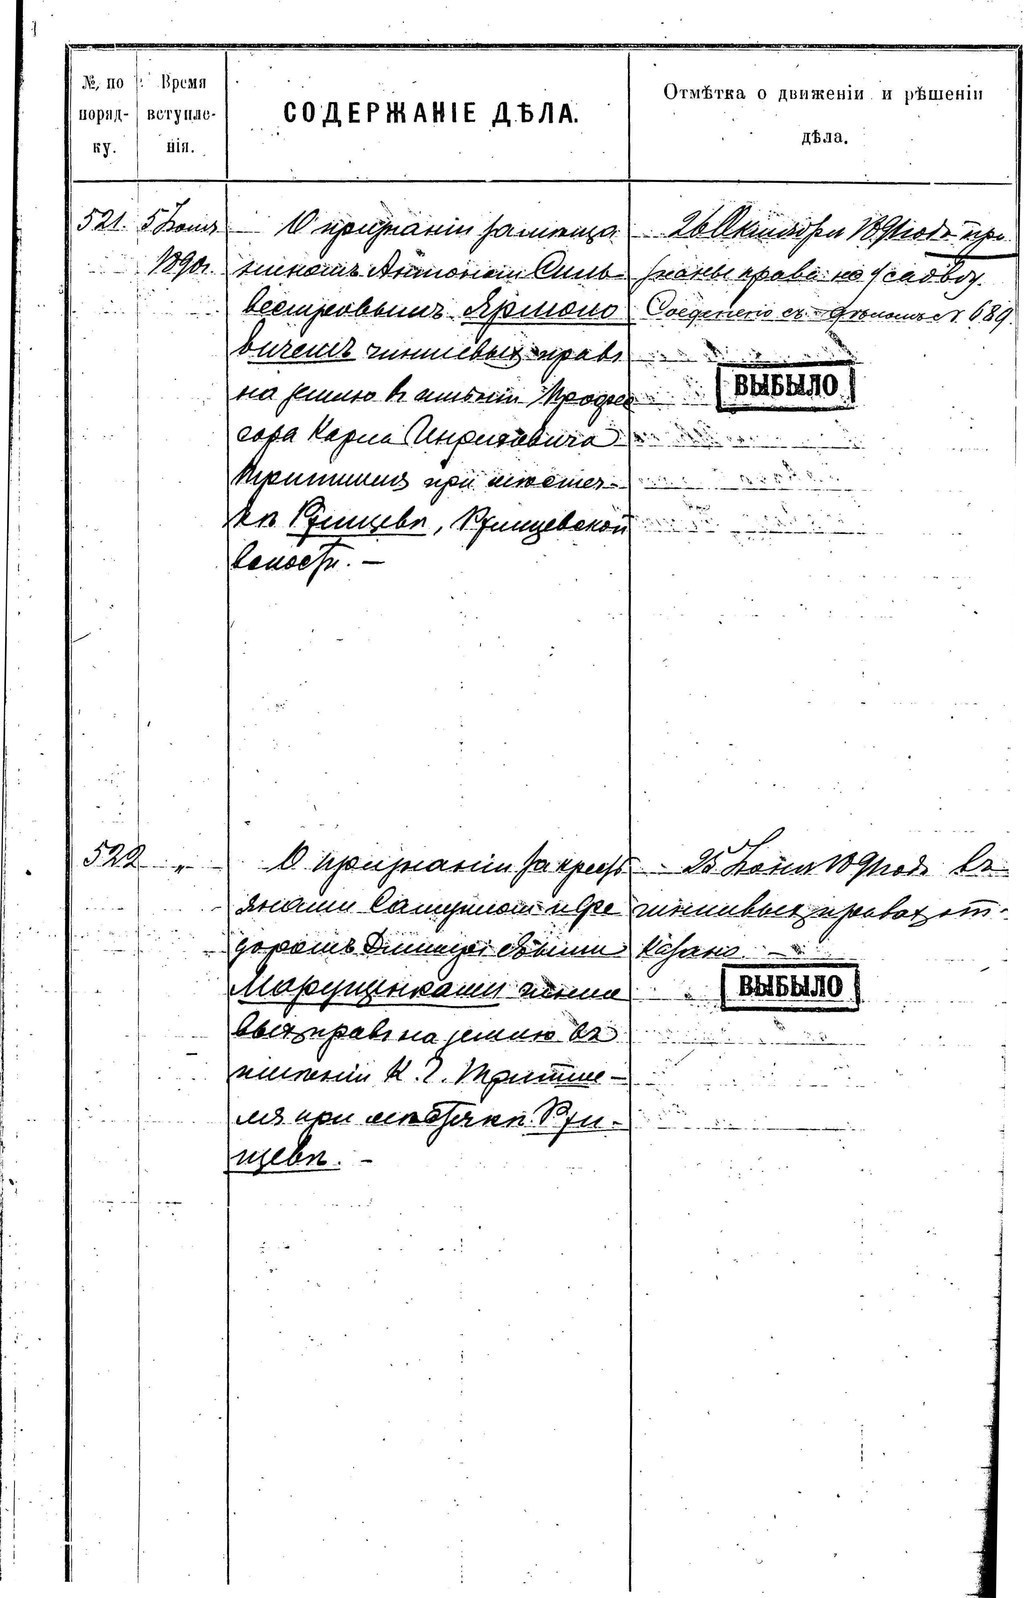 № по поряд- ку.
Время вступле- нія.
СОДЕРЖАНІЕ ДѢЛА.
Отмѣтка о движеніи и рѣшеніи
дѣла.
521.
5 Іюня
1890г.
О признаніи за мѣща
ниномъ Антоніемъ Силь-
вестровымъ Ярмоло
вичемъ чиншевыхъ правъ
на землю въ имѣніи Профес
сора Карла Генриховича
Тритшеля при мѣстеч-
кѣ Ржищевѣ, Ржищевской
волости. —
26 Октября 1891 года при
знаны права на усадьбу.
Соединено съ дѣломъ № 689.
ВЫБЫЛО
522
"
О признаніи за кресть
янами Самуиломъ и Фе
доромъ Дмитріевыми
чинше
выхъ правъ на землю въ
имѣніи К. Г. Тритше-
ля при мѣстечкѣ Ржи-
щевѣ. —
25 Іюня 1891 года въ
чиншевыхъ правахъ от-
казано. —
ВЫБЫЛО